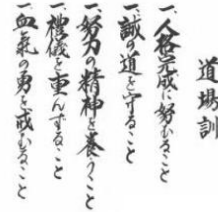 道場訓
一、人格完成に努むること
一、誠の道を守ること
一、努力の精神を養うこと
一、禮儀を重んずること
一、血氣の勇を戒むること